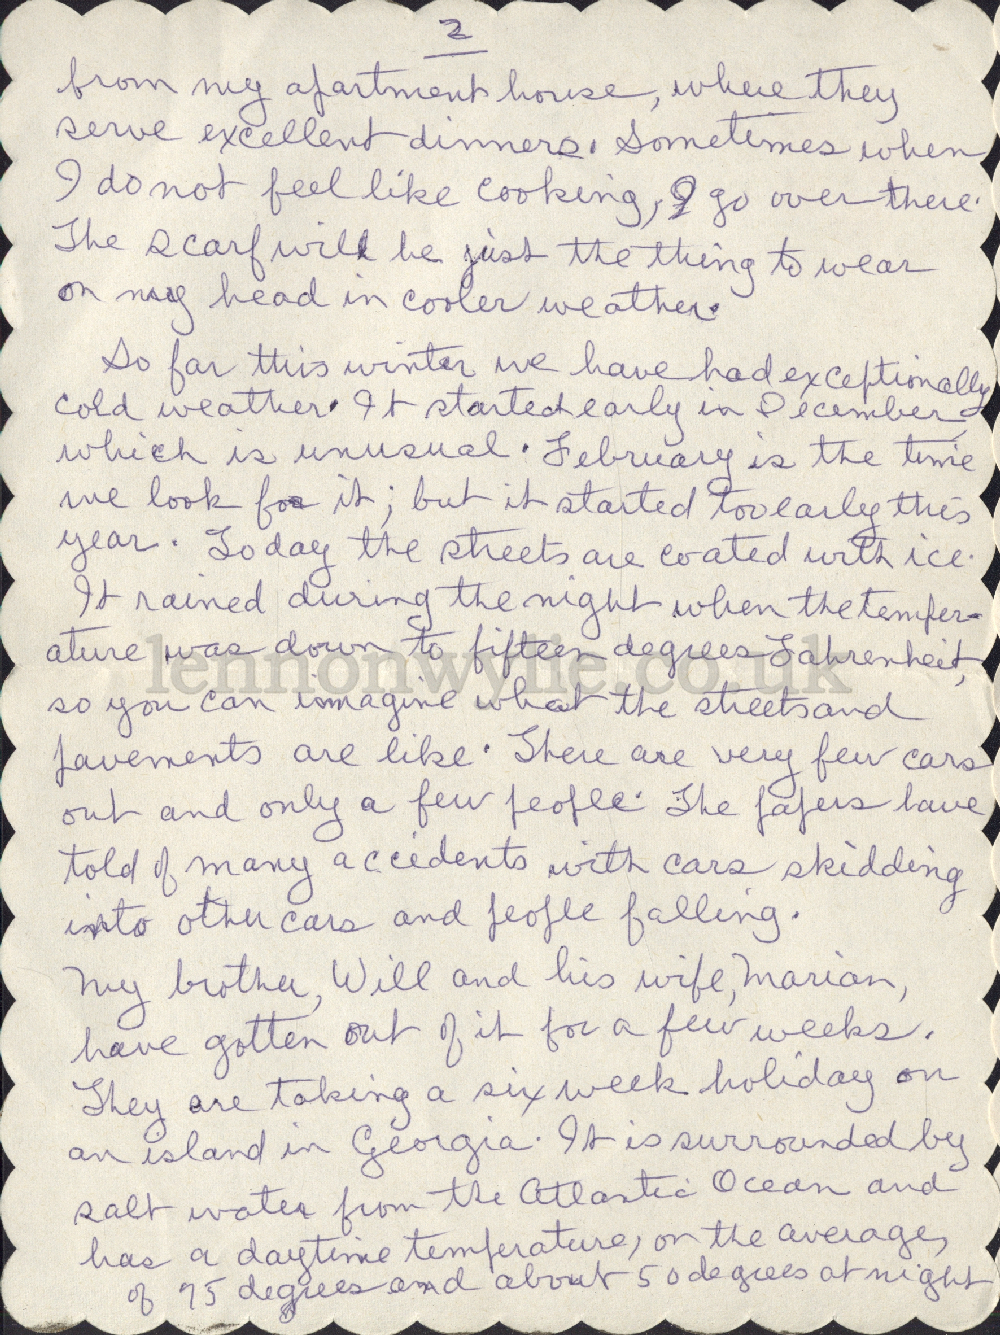 2
from my apartment house, where they
serve excellent dinners. Sometimes when
I do not feel like cooking, I go over there.
The scarf will be just the thing to wear
on my head in cooler weather.
So far this winter we have had exceptionally
cold weather. It started early in December,
which is unusual. February is the time
we look for it; but it started too early this
year. Today the streets are coated with ice.
It rained during the night when the temper-
ature was down to fifteen degrees Fahrenheit,
so you can immagine what the streets and
pavements are like. There are very few cars
out and only a few people. The papers have
told of many accidents with cars skidding
into other cars and people falling.
My brother, Will and his wife, Marian,
have gotten out of it for a few weeks.
They are taking a six week holiday on
an island in Georgia. It is surrounded by
salt water from the Atlantic Ocean and
has a daytime temperature, on the average,
of 75 degrees and about 50 degrees at night
lennonwylie.co.uk